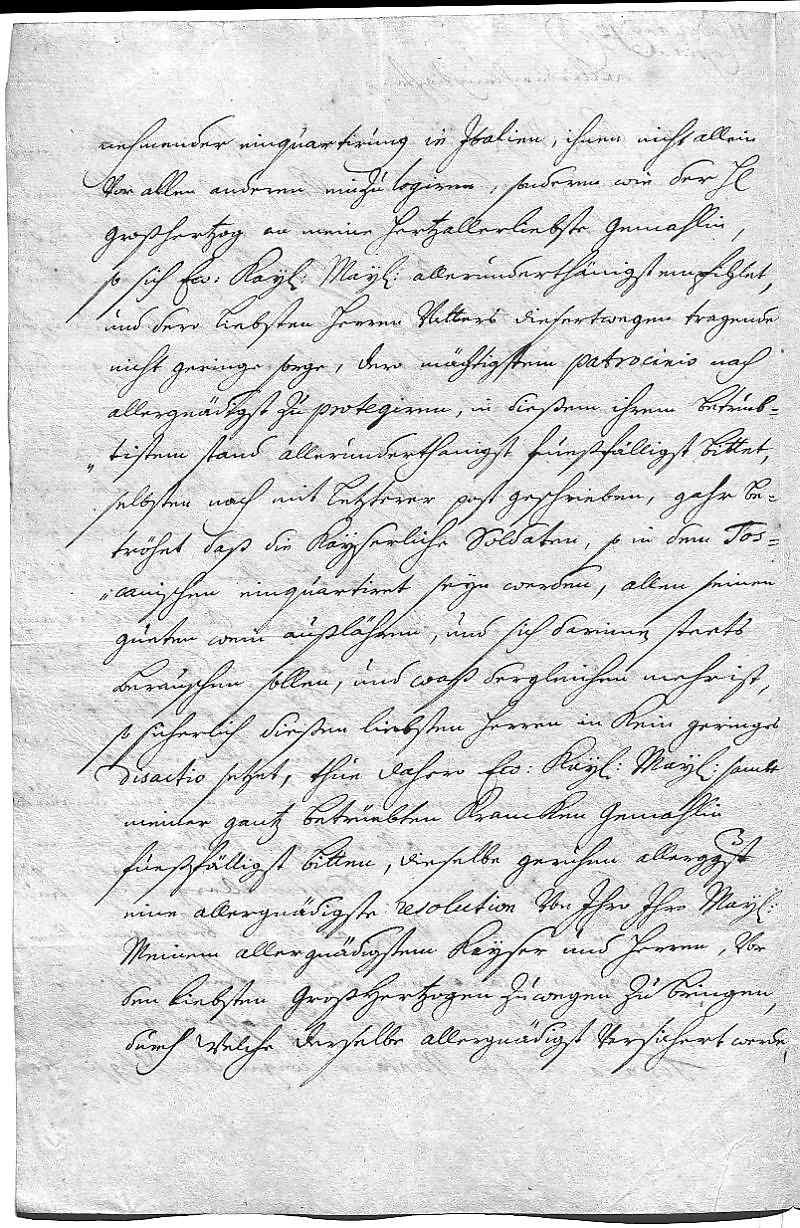 nehmender einquartirung in Italien, ihnen nicht allein
Vor allen anderen einzulogiren, sonderen wie der H
Großhertzog an meine hertzallerliebste Gemahlin,
so sich Ew: Kayl: Mayl: allerunderthänigst empfihlet,
und dero liebsten Herren Vatters diesertwegen tragende
nicht geringe sorge, dero mächtigstem patrocinio nach
allergnädigst zu protegiren, in dießem ihrem betrüb-
„tistem stand allerunderthänigst fueßfälligst bittet,
selbsten nach mit letzterer post geschrieben, gahr be-
tröhet daß die Kayserliche Soldaten, so in dem Tos-
„canischen einquartiret seyn werden, allen seinen
gueten wein außlähren, und sich darinne staets
berauschen sollen, und waß dergleichen mehr ist,
so sicherlich dießen liebsten Herren in kein geringes
disactio setzet, thue dahero Ew: Kayl: Mayl: sambt
meiner gantz betrüebten Krancken Gemahlin
fueßfälligst bitten, dieselbe geruhen allerggst
eine allergnädigste resolution Von Ihro Ihro Mayl:
Meinem allergnädigstem Kayser und Herren, Vor
den liebsten Großhertzogen zuwegen zu bringen,
durch welche derselbe allergnädigst Versichert werde,